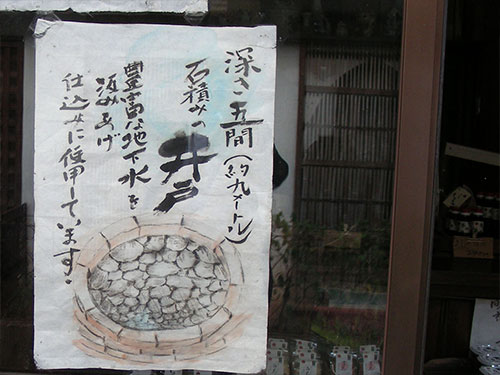 深さ五間(約九メートル)
石積みの
井戸
豊富な地下水を
汲みあげ
仕込みに使用しています。